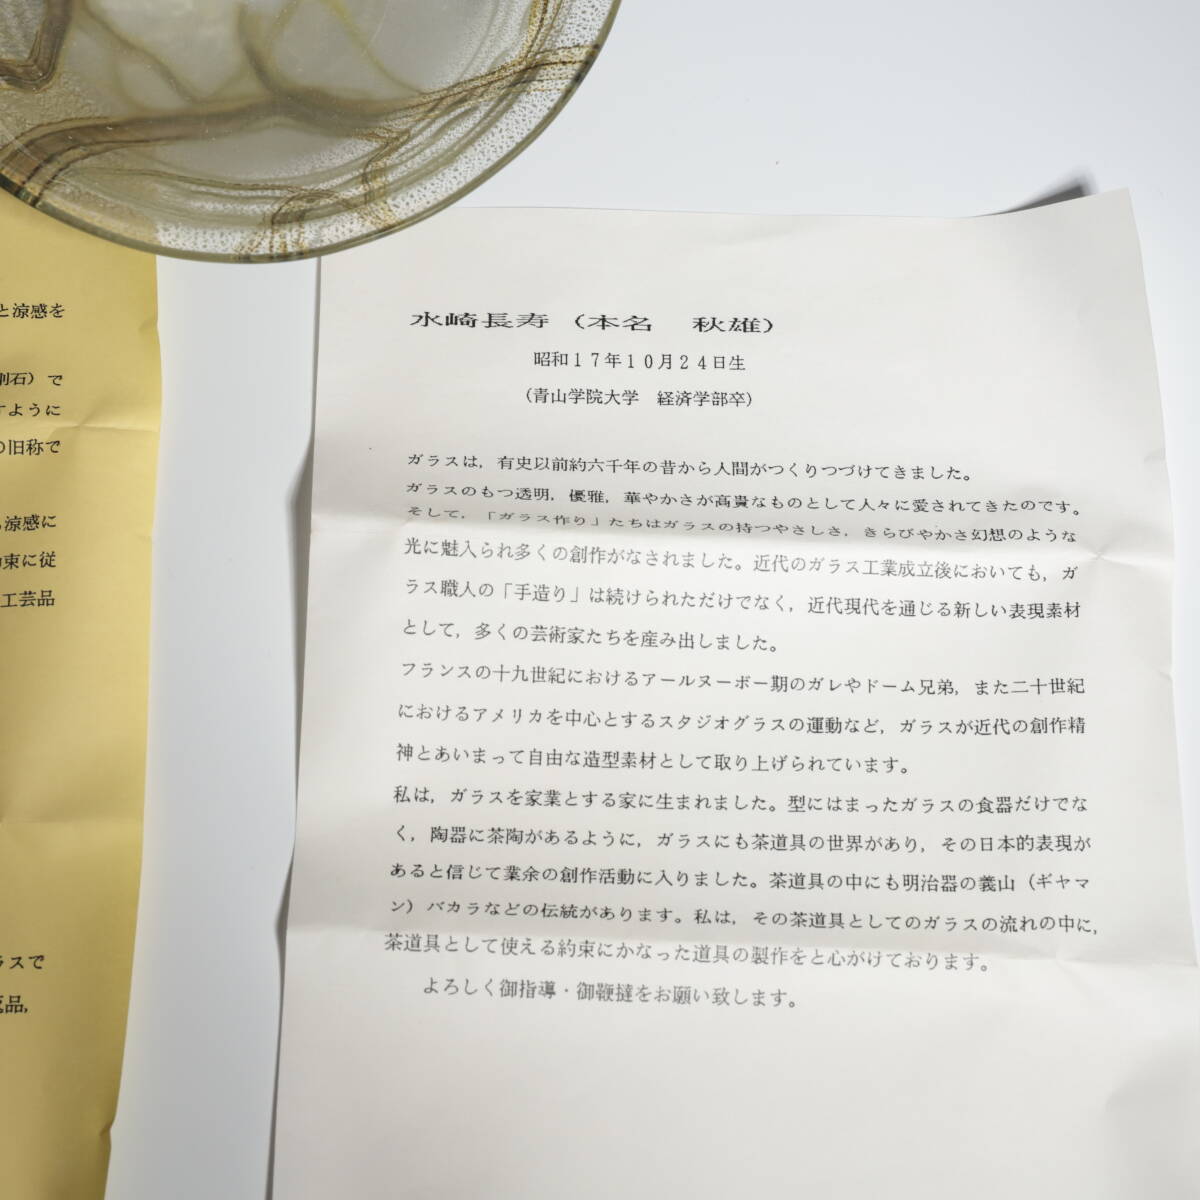 と涼感を
石）で
すように
の旧称で
涼感に
束に従
工芸品
ラスで
品，
水崎長寿（本名　秋雄）
昭和１７年１０月２４日生
（青山学院大学　経済学部卒）
ガラスは，有史以前約六千年の昔から人間がつくりつづけてきました。
ガラスのもつ透明，優雅，華やかさが高貴なものとして人々に愛されてきたのです。
そして，「ガラス作り」たちはガラスの持つやさしさ，きらびやかさ幻想のような
光に魅入られ多くの創作がなされました。近代のガラス工業成立後においても，ガ
ラス職人の「手造り」は続けられただけでなく，近代現代を通じる新しい表現素材
として，多くの芸術家たちを産み出しました。
フランスの十九世紀におけるアールヌーボー期のガレやドーム兄弟，また二十世紀
におけるアメリカを中心とするスタジオグラスの運動など，ガラスが近代の創作精
神とあいまって自由な造型素材として取り上げられています。
私は，ガラスを家業とする家に生まれました。型にはまったガラスの食器だけでな
く，陶器に茶陶があるように，ガラスにも茶道具の世界があり，その日本的表現が
あると信じて業余の創作活動に入りました。茶道具の中にも明治器の義山（ギヤマ
ン）バカラなどの伝統があります。私は，その茶道具としてのガラスの流れの中に，
茶道具として使える約束にかなった道具の製作をと心がけております。
よろしく御指導・御鞭撻をお願い致します。